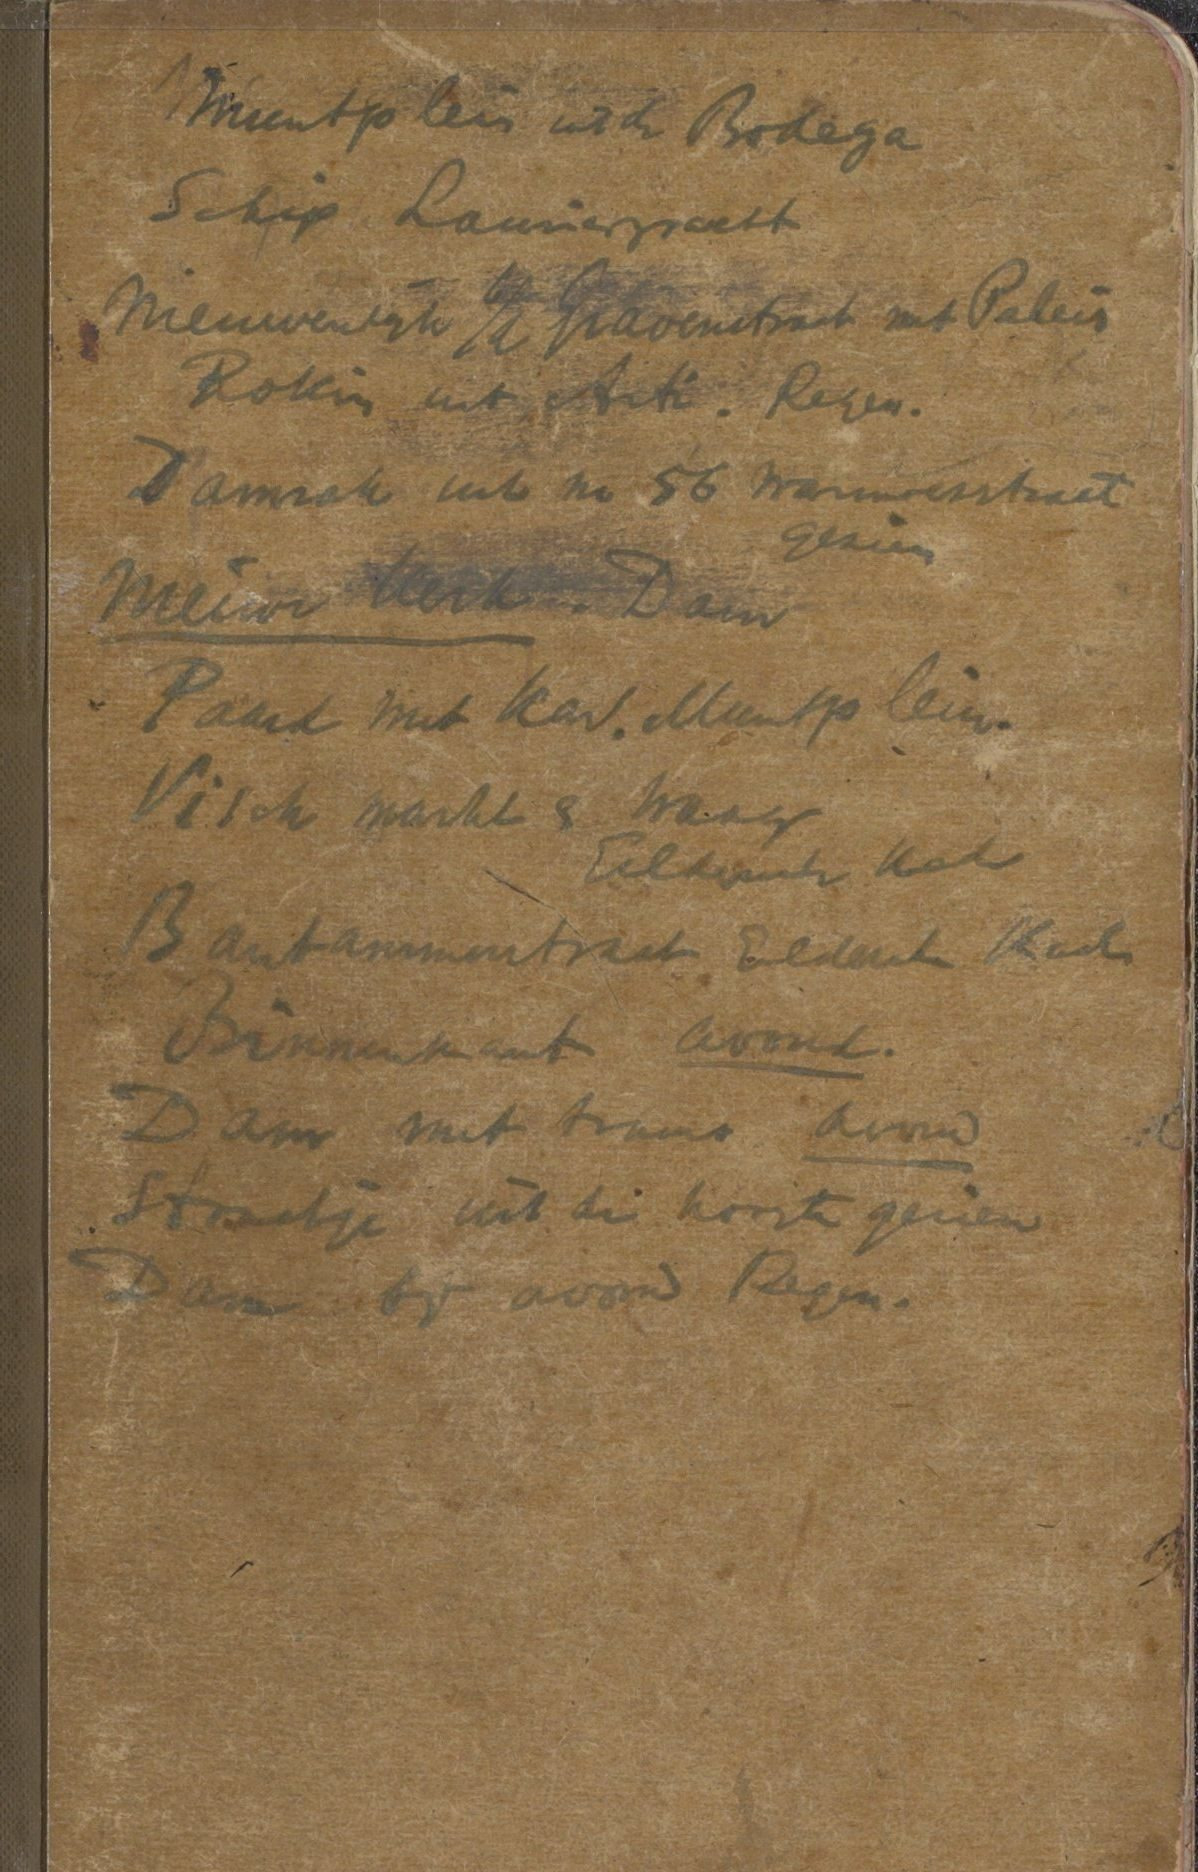 Muntplein uit de Bodega
Schip. Lauriergracht
Nieuwendijk h/d Gravenstraat met Paleis
Rokin uit Arti. Regen.
Damrak uit no 56 Warmoesstraat
gezien
Nieuwe Kerk. Dam
Paard met kar. Muntplein.
Visch markt & Waag
Eilandsche Kade
Bantammerstraat
Binnenkant avond.
Dam met trams avond
Straatje uit de hoogte gezien
Dam bij avond Regen.